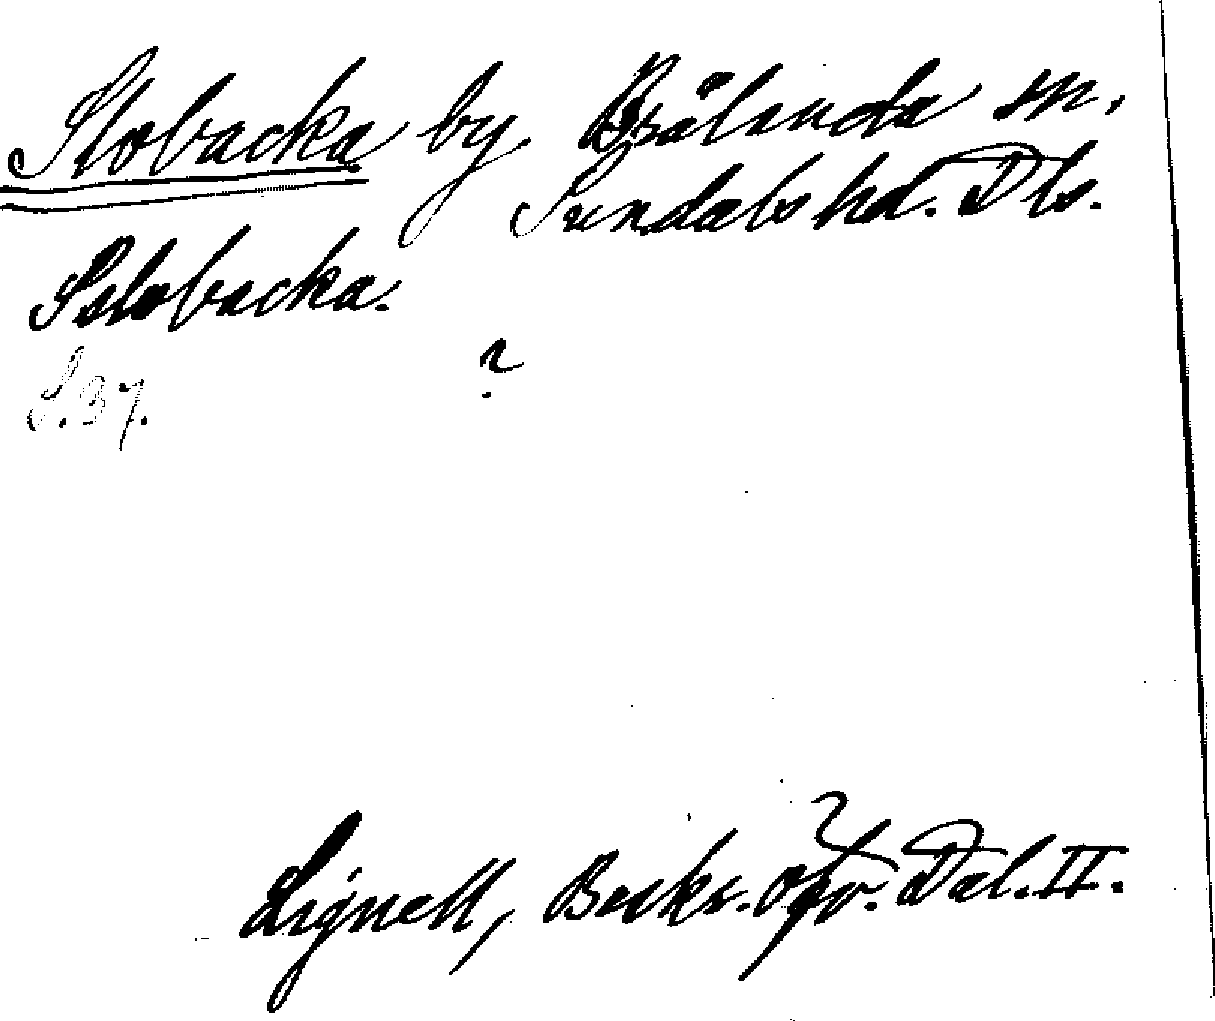 Stobacka by, Brålanda sn.
Sundals hd. Dls.
Stobacka.
?
S. 37.
Lignell, Beskr. öfv. Dal. II.